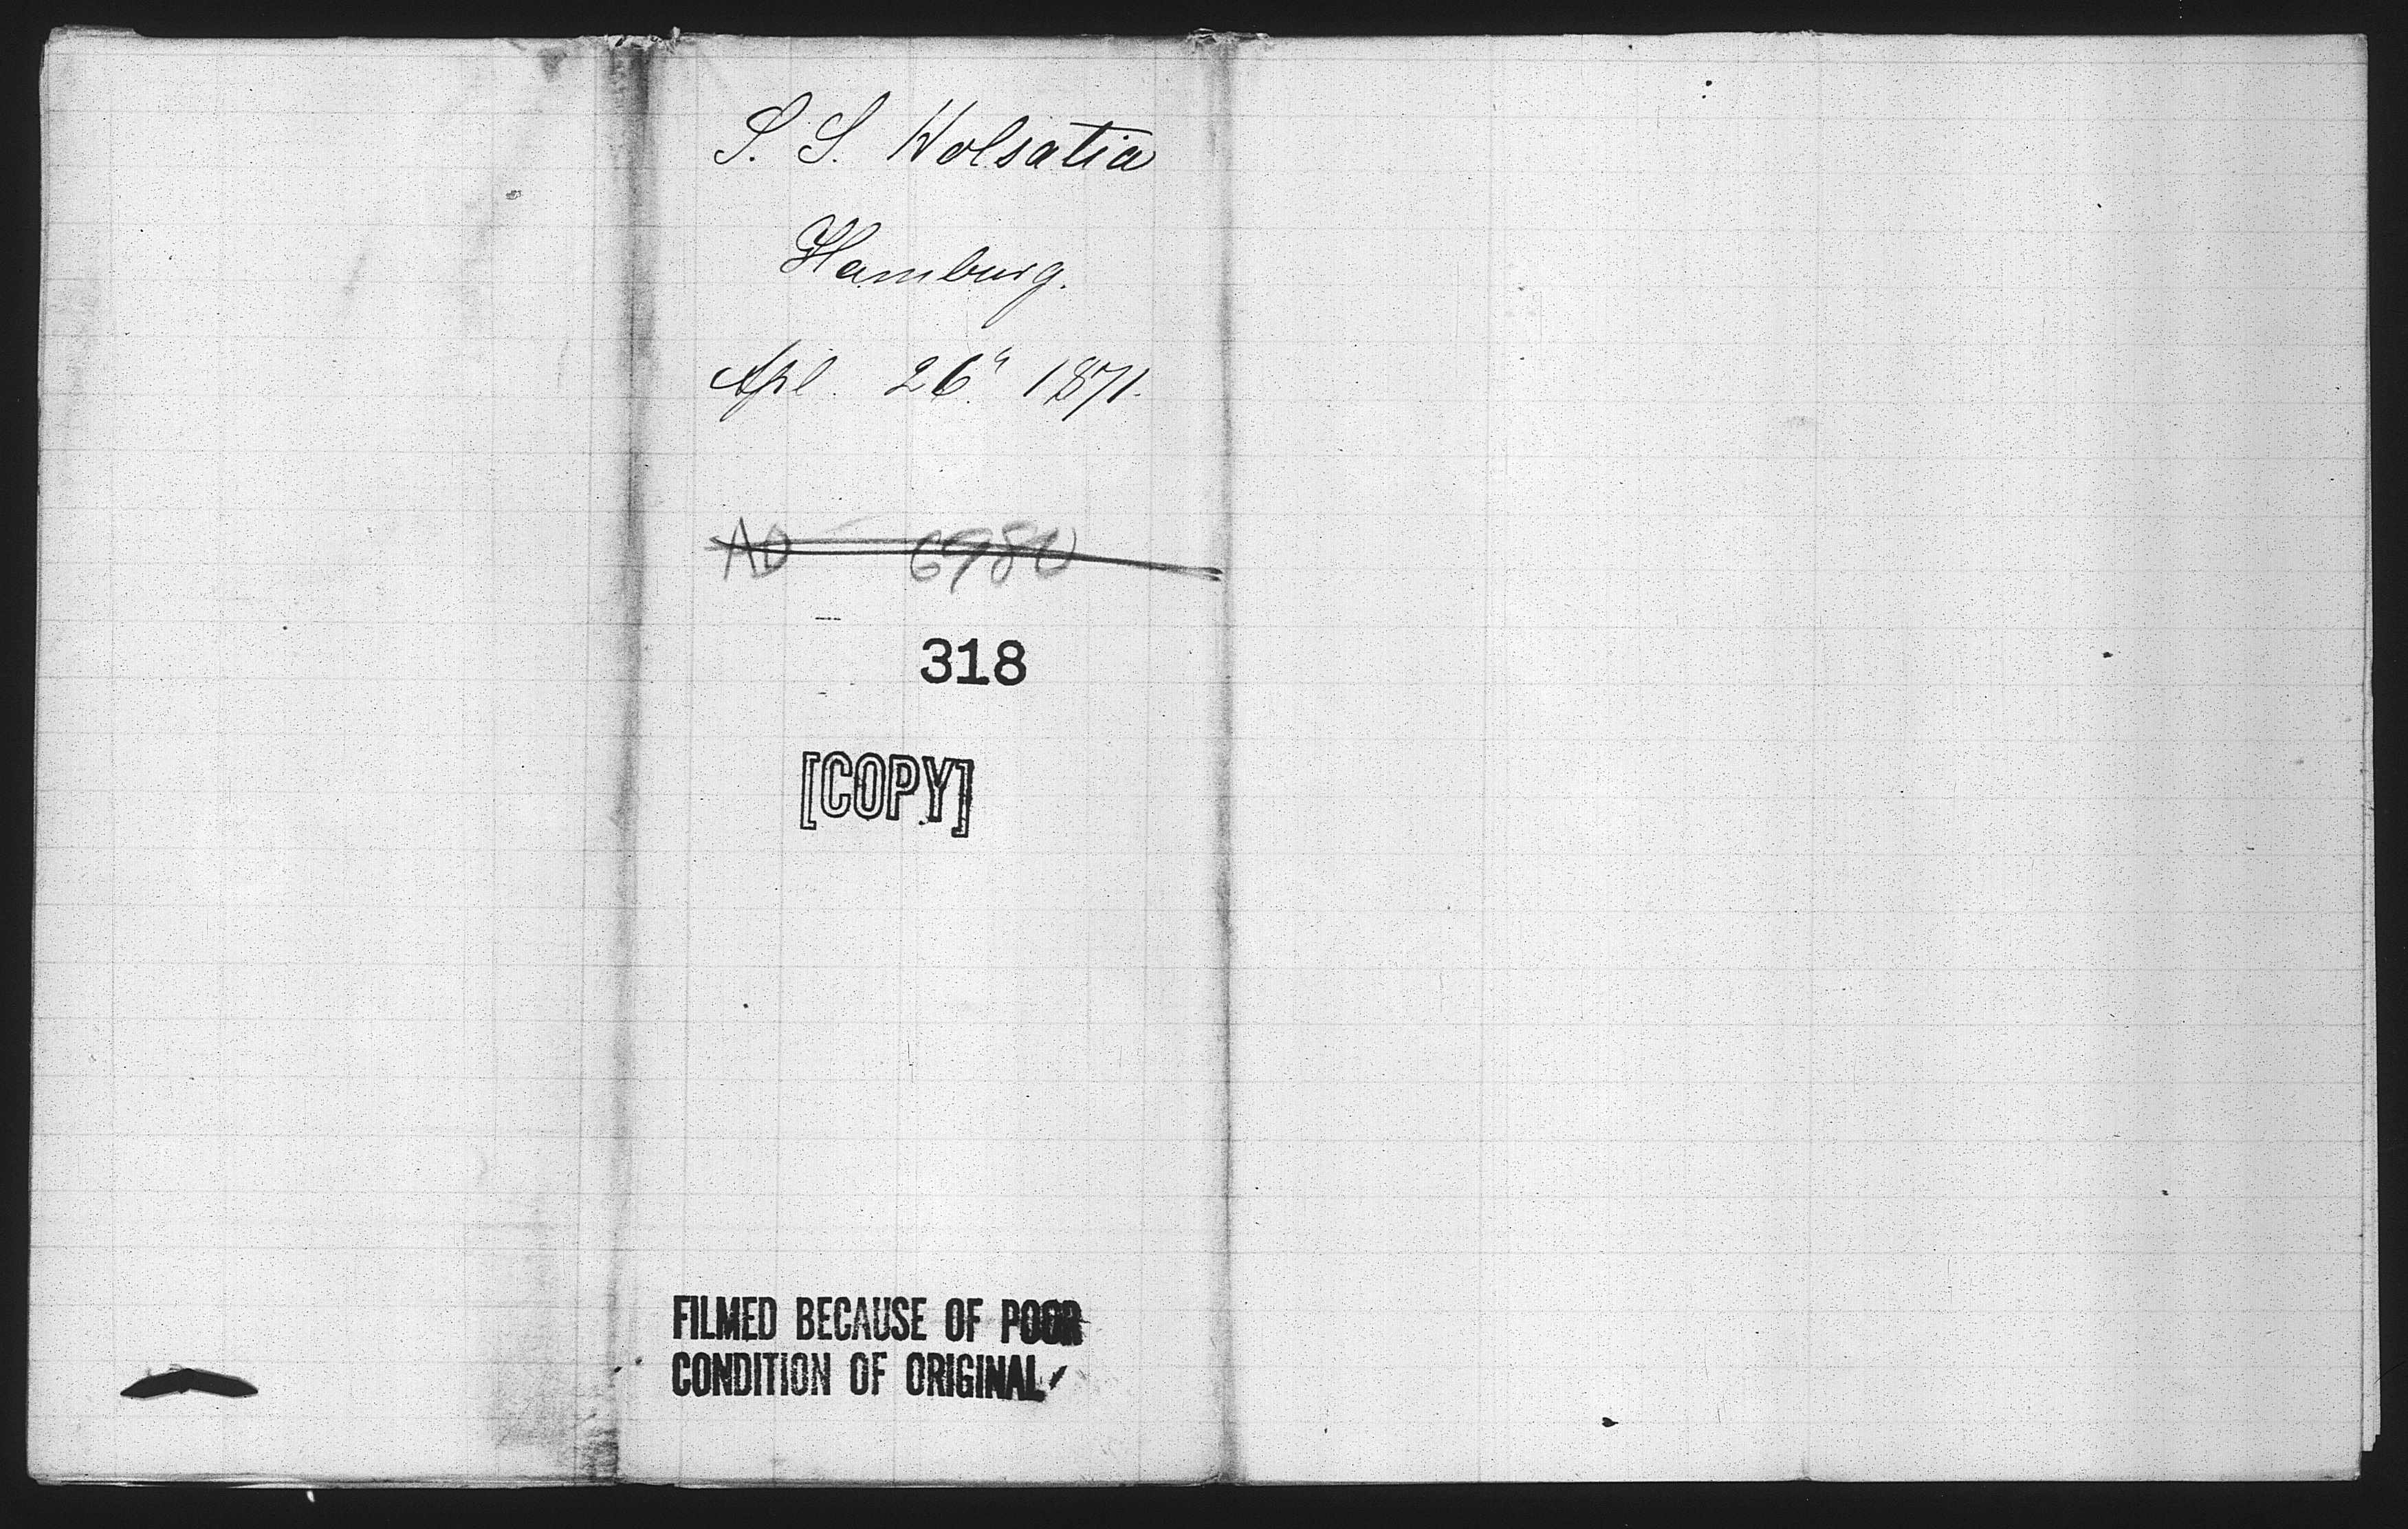 S. S. Holsatia
Hamburg.
Apl. 26" 1871.
AD 6980
318
[COPY]
FILMED BECAUSE OF POOR
CONDITION OF ORIGINAL